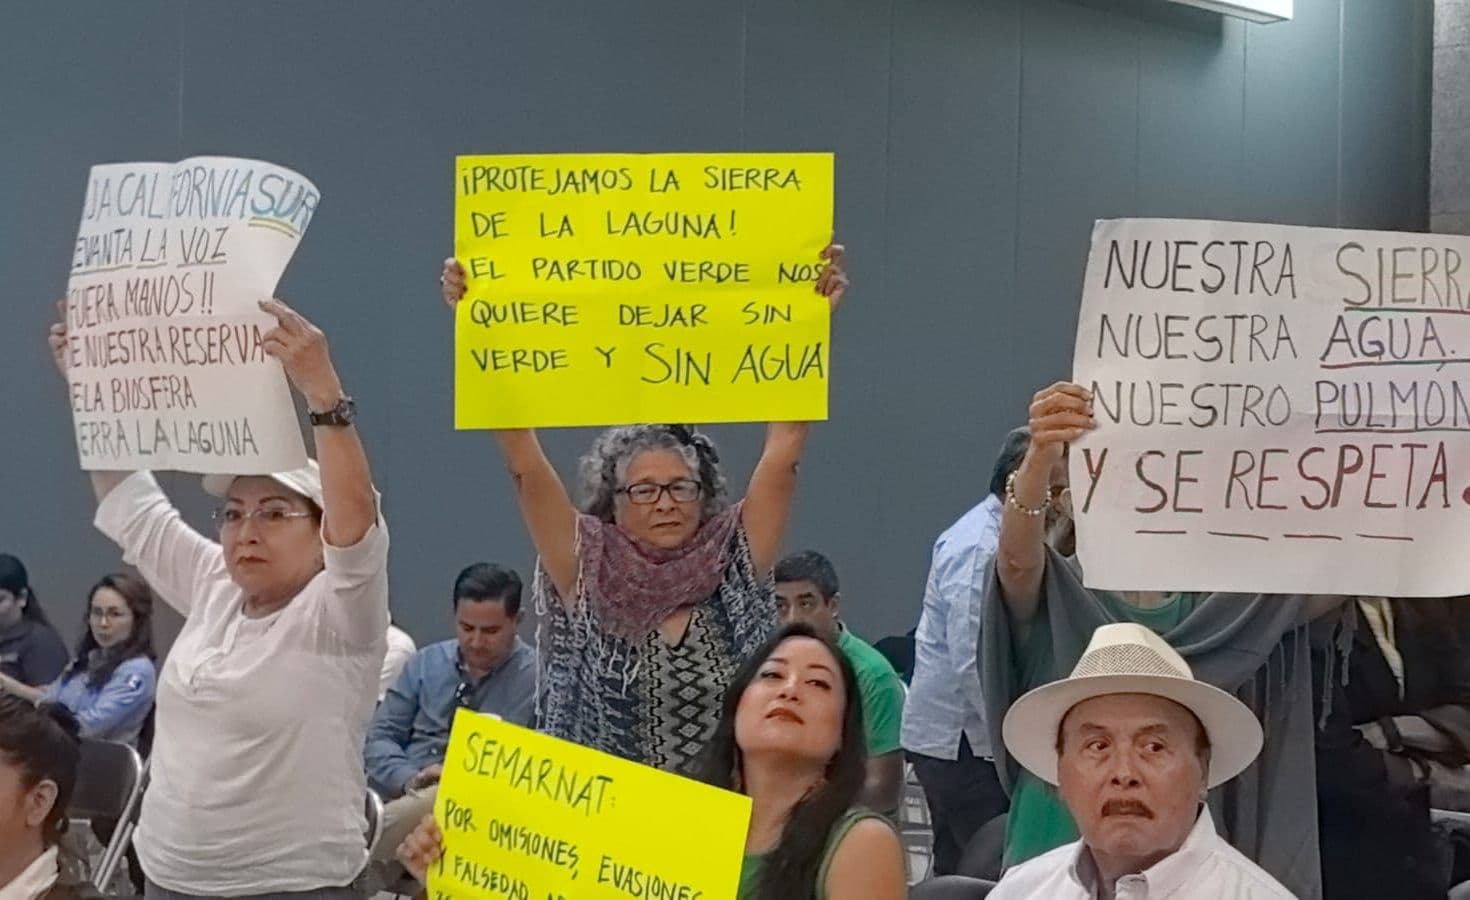 JA CALIFORNIA SUR
EVANTA LA VOZ
FUERA MANOS!!
E NUESTRA RESERVA
E LA BIOSFERA
ERRA LA LAGUNA
¡PROTEJAMOS LA SIERRA
DE LA LAGUNA!
EL PARTIDO VERDE NOS
QUIERE DEJAR SIN
VERDE Y SIN AGUA
NUESTRA SIERRA
NUESTRA AGUA.
NUESTRO PULMON
Y SE RESPETA.
SEMARNAT:
POR OMISIONES, EVASIONES
Y FALSEDAD